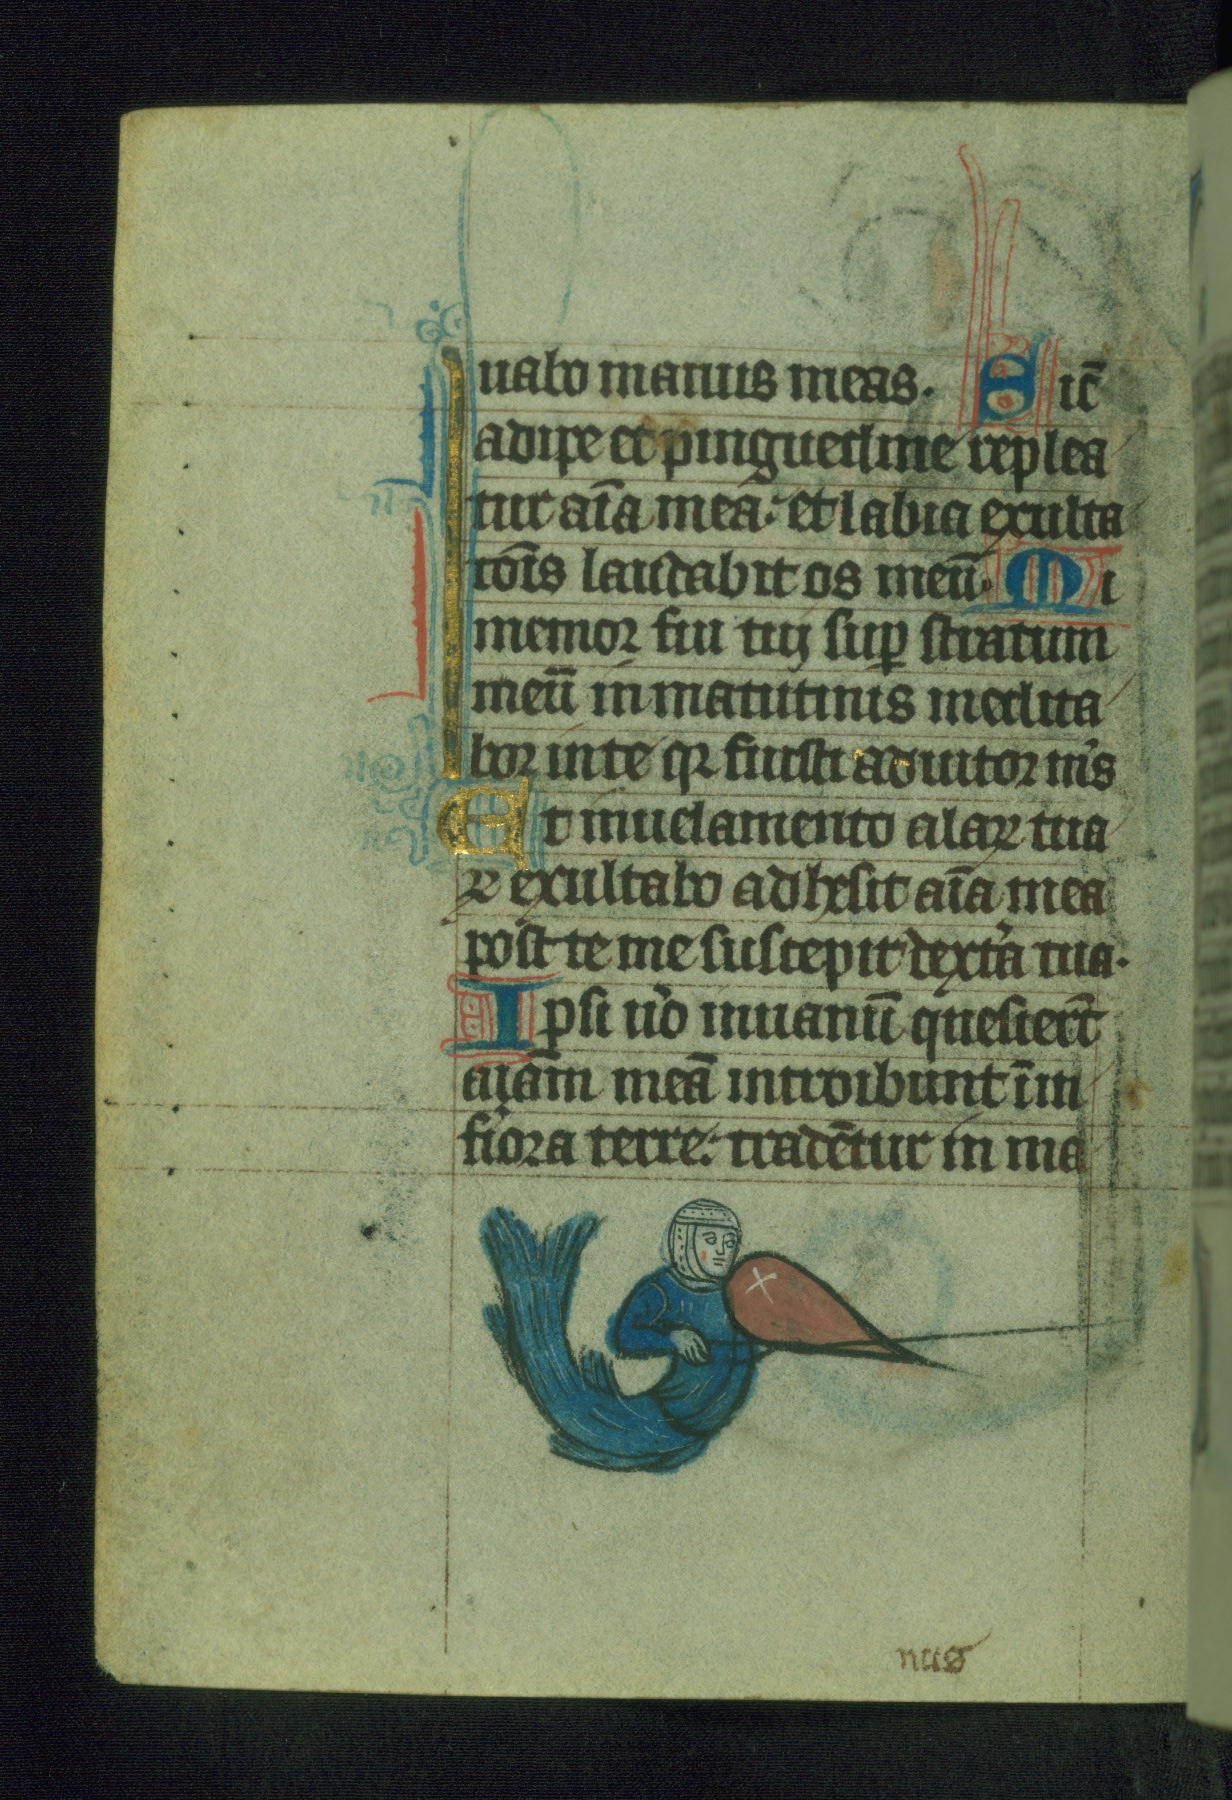 uabo manus meas. Sic̄
adipe et pinguedine replea
tur aīa mea: et labia exulta
tōis laudabit os meū. Si
memor fui tui sup stratum
meū in matutinis medita
bor in te qꝛ fuisti adiutor mꝰs
Et in uelamento alaꝝ tua
ꝝ exultabo adhesit aīa mea
post te me suscepit dextᵃa tua.
Ipsi uᵒo in uanū quesierūt
aīam meā introibunt ī in
fᵢora terre: tradētur in ma
nus